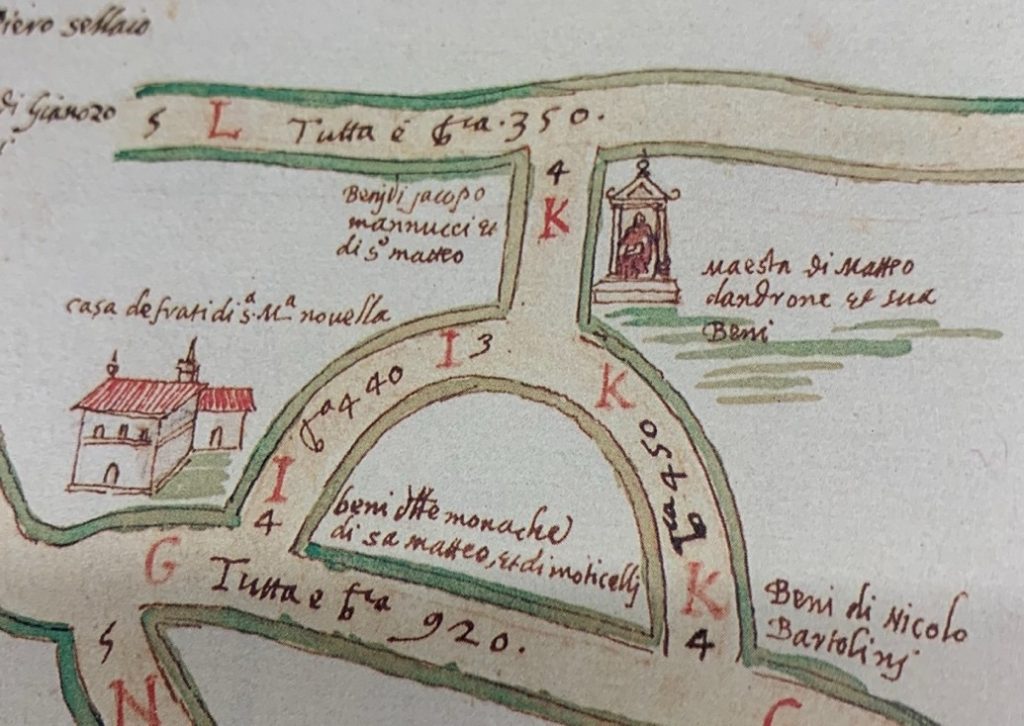 Piero sellaio
di Gianozo
5 L Tutta è bra. 350.
4
K
Benj di jacopo
mannucci et
di so matteo
Maesta di Matteo
dandrone et sua
Beni
casa de frati di sa. Ma novella
I 3.
K
bra 440
bra 450
I
4
beni dtte monache
di sa matteo, et di moticellj
G
Tutta è bra 920.
K
4
Beni di Nicolo
Bartolinj
5
N
G